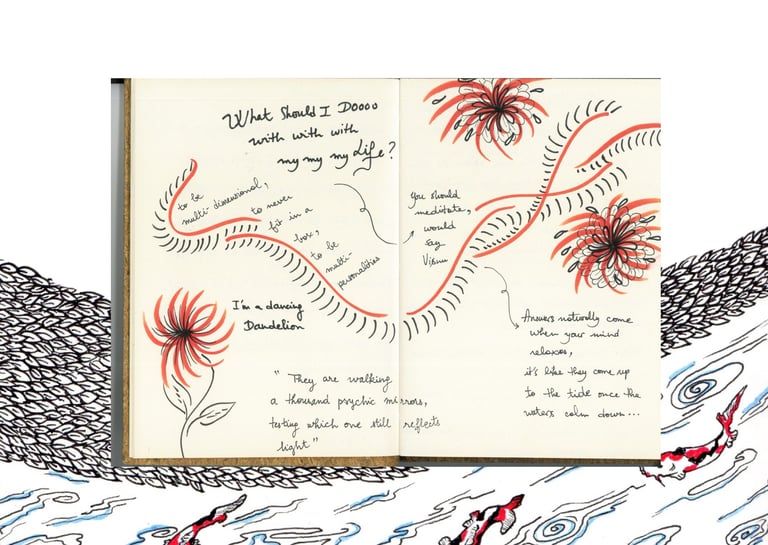 What Should I Doooo
with with with
my my my Life?
to be
multi-dimensional,
to never
fit in a
box,
to be
multi-
personalities
I'm a dancing
Dandelion
"They are walking
a thousand psychic mirrors,
testing which one still reflects
light"
You should
meditate,
would
say
Answers naturally come
when your mind
relaxes,
it's like they come up
to the tide once the
waters calm down...